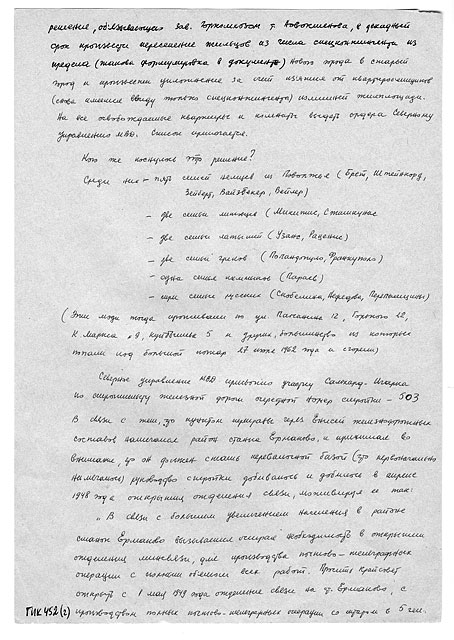 решение, обязывающее зав. Горкомхозом т. Новокшенова, в декадный
срок произвести переселение жильцов из числа спецконтингента из
предела (такова формулировка в документе) нового города в старый
город и произвести уплотнение за счет изъятия от квартиросъемщиков
(снова имелись ввиду только спецконтингенты) излишней жилплощади.
На все освобождаемые квартиры и комнаты выдать ордера Северному
управлению МВД. Список прилагается.
Кого же коснулось это решение?
Среди них – пять семей немцев из Поволжья (Брет, Штейнкорд,
Зейберт, Вайзбекер, Вейлер)
– две семьи литовцев (Микитис, Сташкунас
– две семьи латышей (Узанс, Раценис)
– две семьи греков (Попандопуло, Франкулло)
– одна семья калмыков (Параев)
– три семьи русских (Скобелкина, Нередова, Перепелицины)
(Эти люди тогда проживали по ул Папанина 12, Горького 22,
К Маркса 9, Куйбышева 5 и других, большинство из которых
попали под большой пожар 27 июля 1962 года и сгорели)
Северное управление МВД присвоило участку Салехард–Игарка
по строительству железной дороги очередной номер стройки – 503
В связи с тем, что пунктом переправы через Енисей железнодорожных
составов намечался район станка Ермаково, и принимая во
внимание, что он должен стать перевалочной базой (что первоначально
намечалось) руководство стройки добивалось и добилось в апреле
1948 года открытия отделения связи, мотивируя ее так:
„В связи с большим увеличением населения в районе
станок Ермаково вызывается острая необходимость в открытии
отделения минсвязи, для производства почтово–телеграфных
операции с полным объемом всех работ. Просить Крайсовет
открыть с 1 мая 1949 года отделение связи на ст. Ермаково, с
производством полных почтово–телеграфных операции со штатом в 5 чел.
ГИК 452 (2)